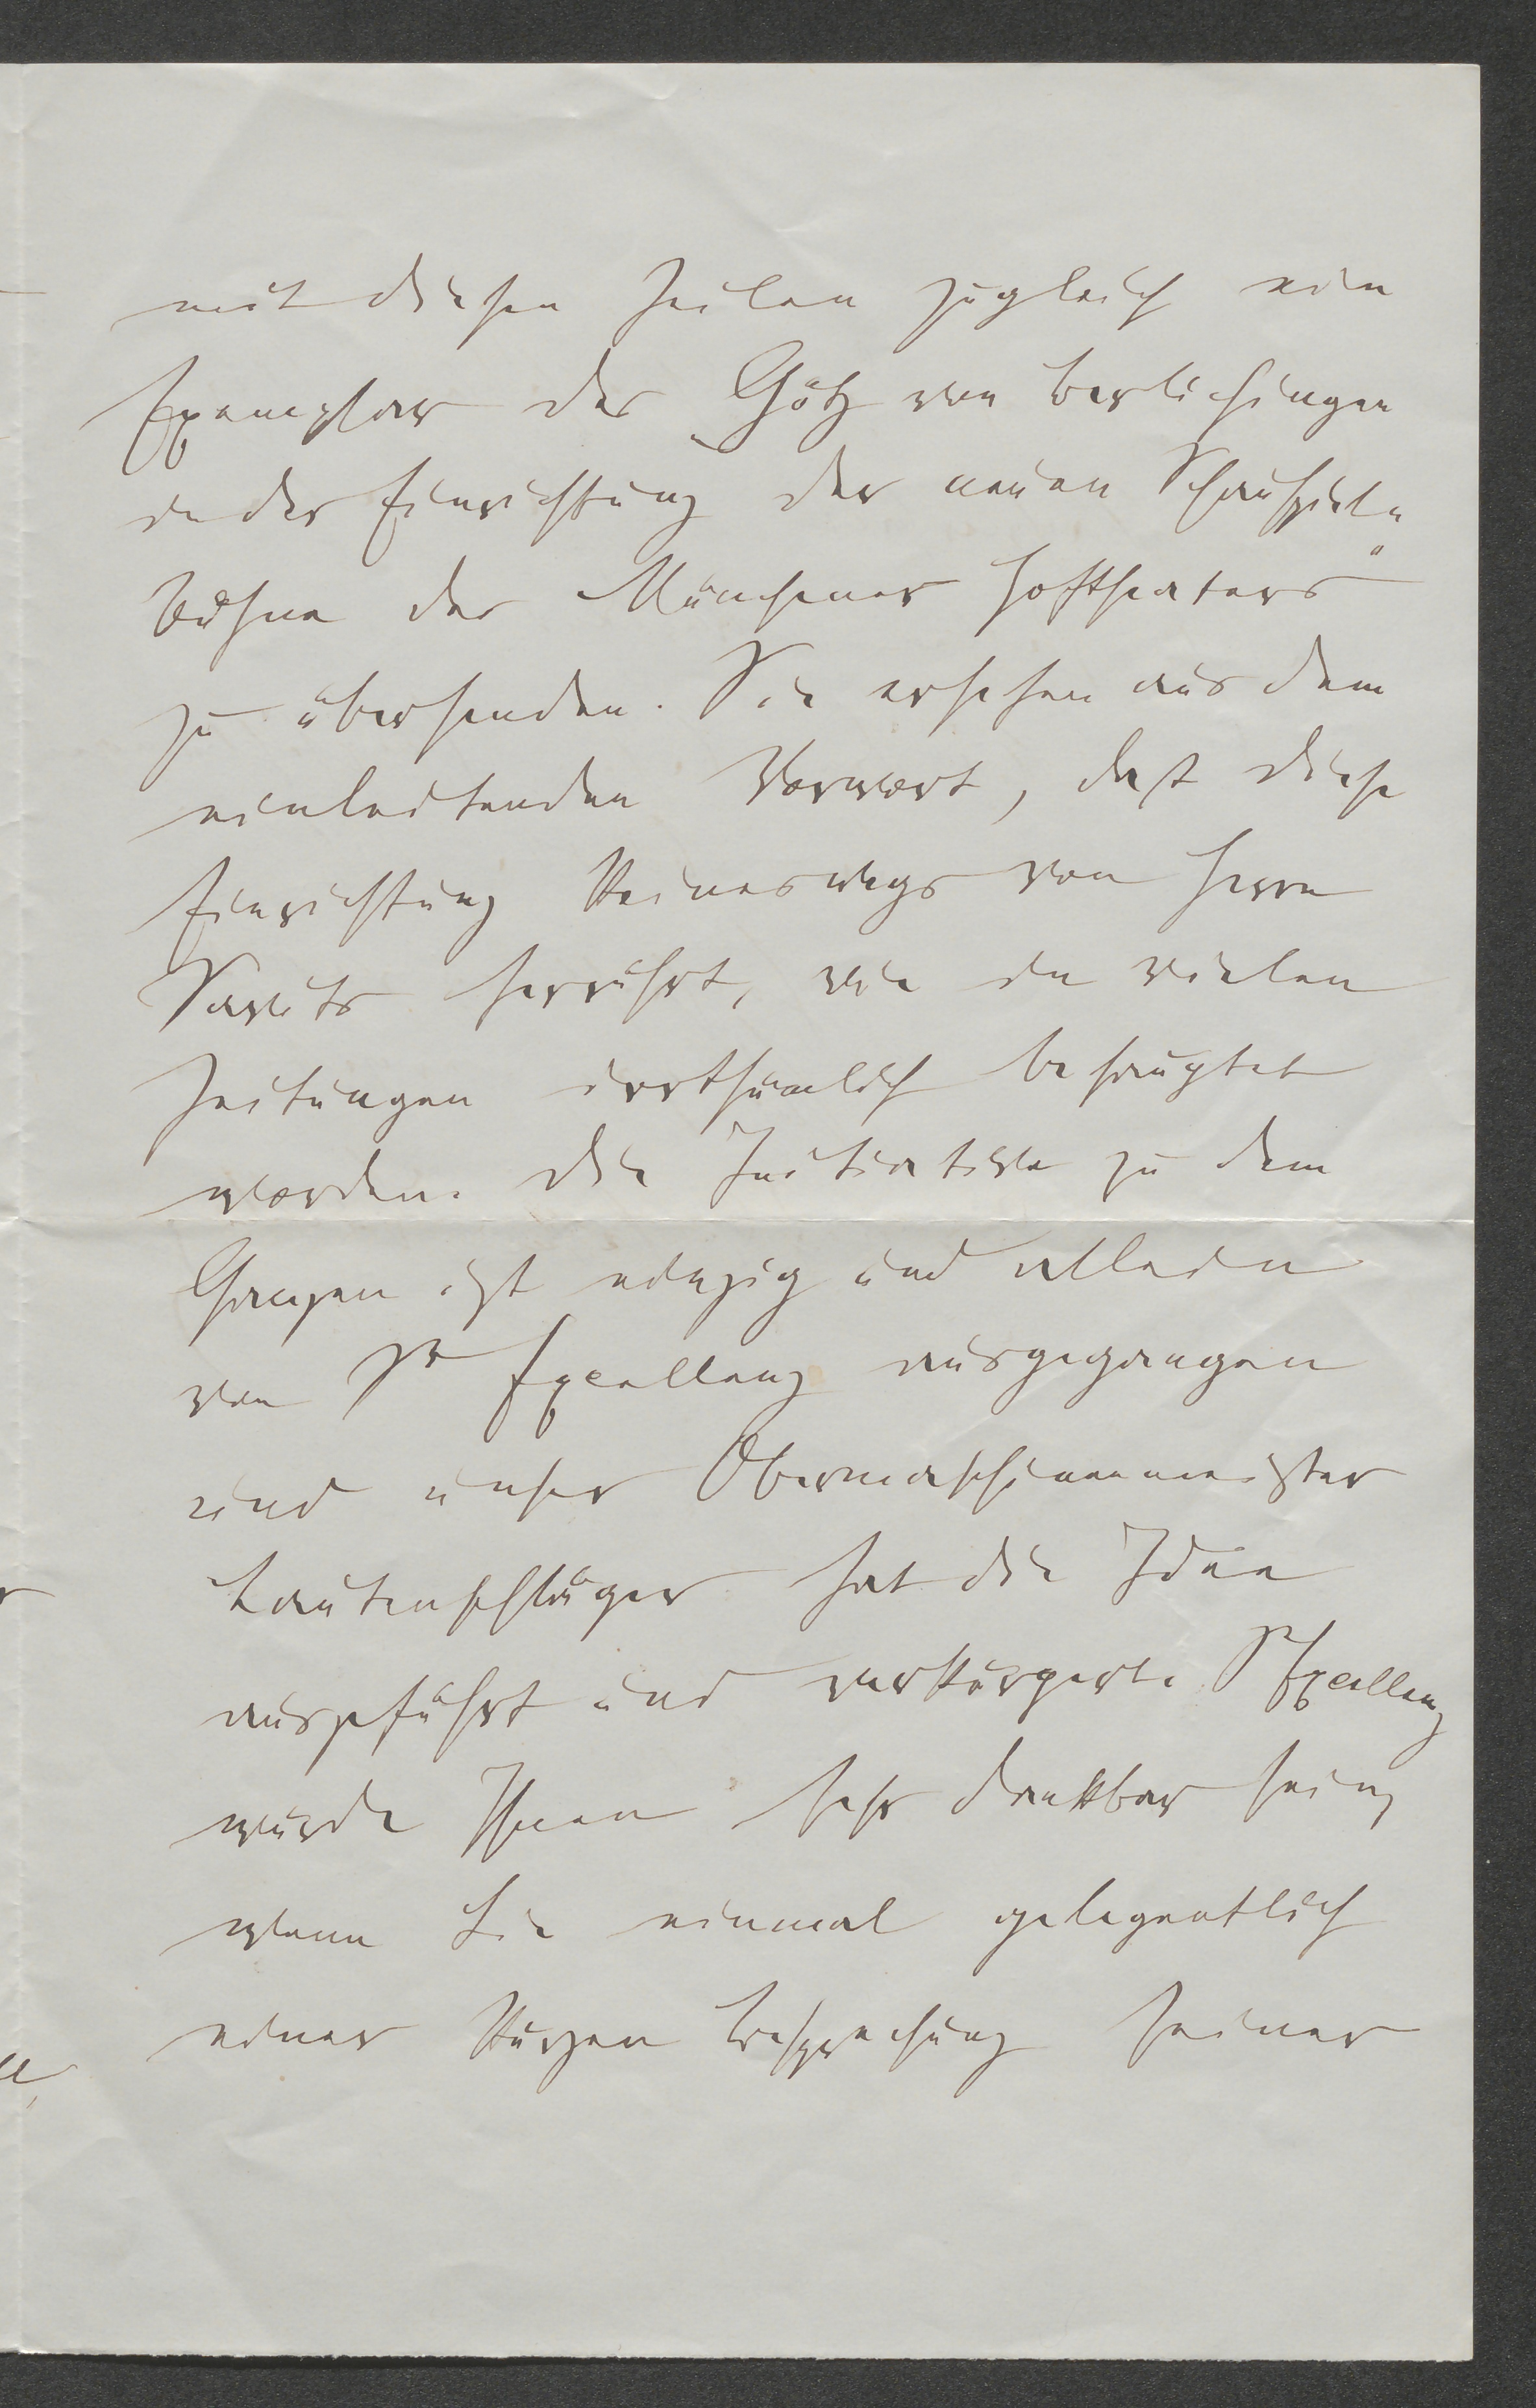 mit diesen Zeilen zugleich ein
Exemplar des „Götz von Berlichingen
in der Einrichtung der neuen Schauspiel„
bühne des Münchener Hoftheaters“
zu übersenden. Sie ersehen aus dem
einleitenden Vorwort, daß diese
Einrichtung keineswegs von Herrn
Savits herrührt, wie in vielen
Zeitungen irrthümlich behauptet
worden. Die Initiative zu dem
Ganzen ist einzig und allein
von Sr Excellenz ausgegangen
und unser Obermaschinenmeister
Lautenschläger hat die Idee
ausgeführt und verkörpert. S. Excellenz
würde Ihnen sehr dankbar sein,
wenn Sie einmal gelegentlich
einer kurzen Besprechung seiner